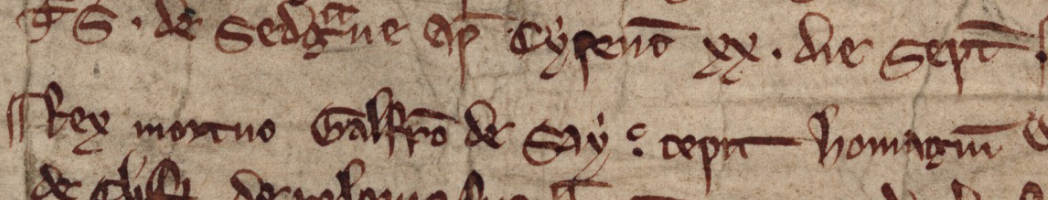 T̃ S. de Sedg̃ue ap̃ Cyrenc̃ xx. die Sept̃
¶ Rex mortuo Galfrõ de Say : cepit homagiũ
de